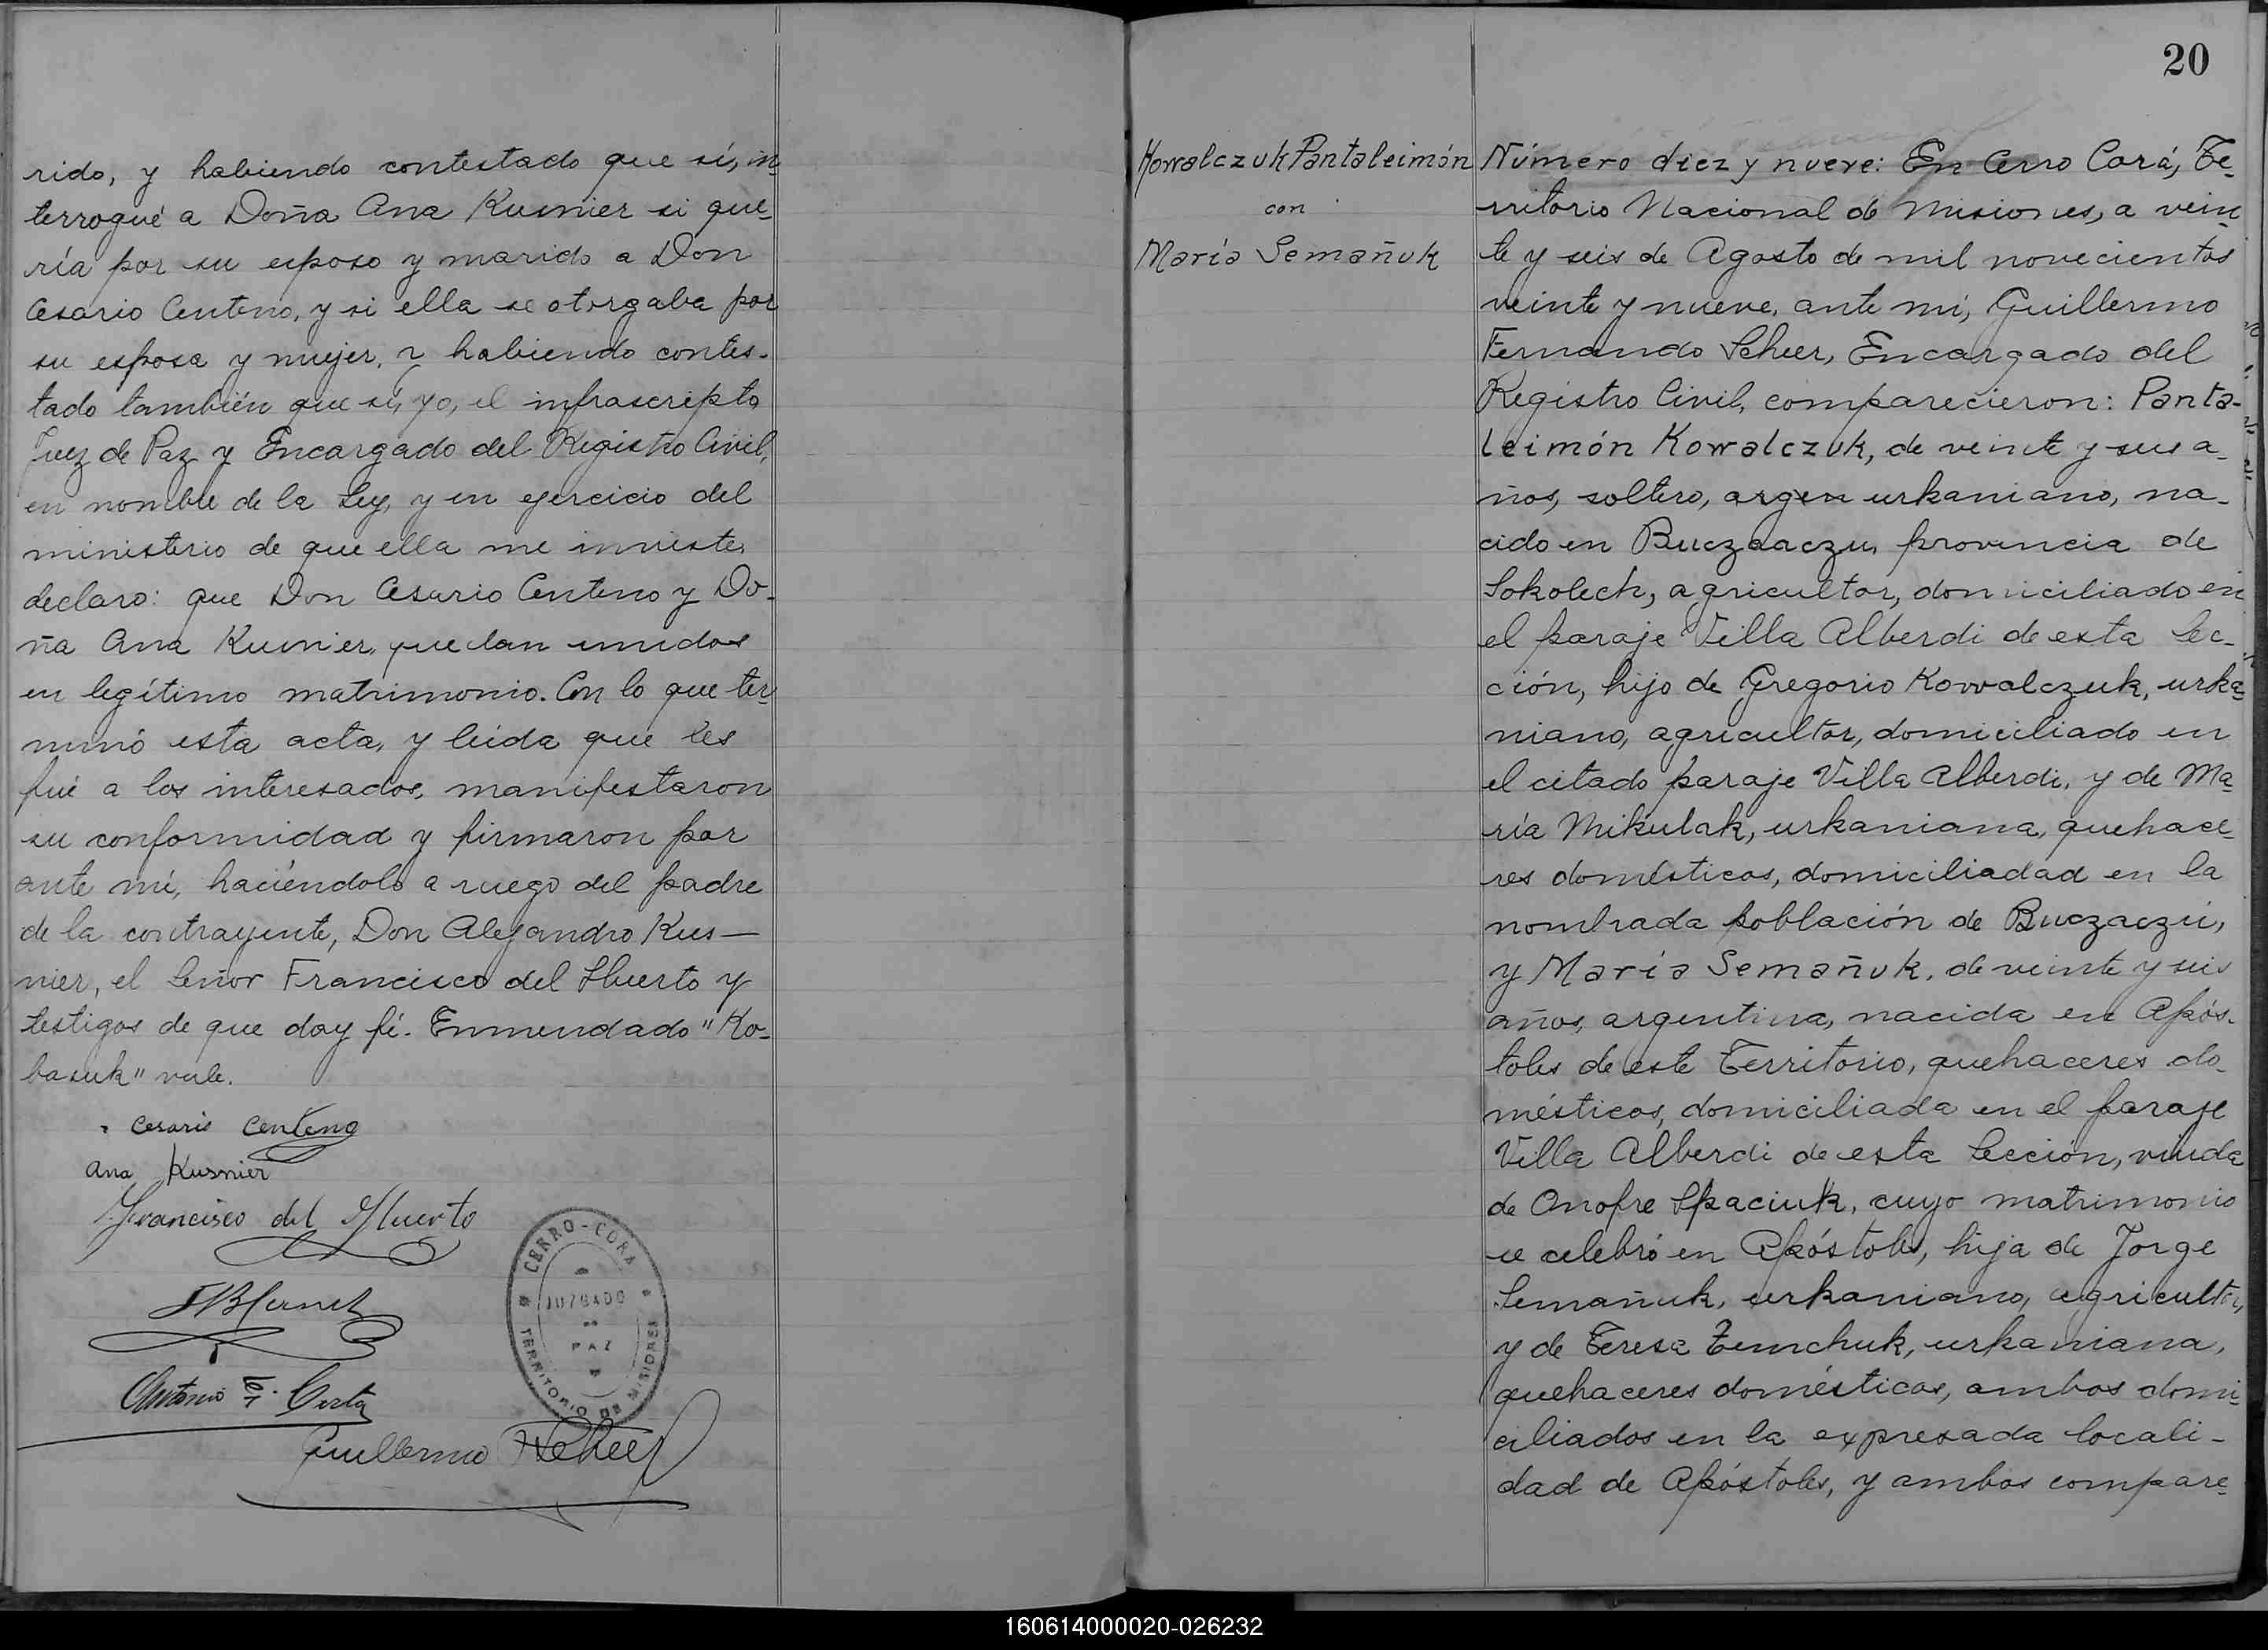 rido, y habiendo contestado que sí, in-
terrogué a Doña Ana Kusnier si que-
ría por su esposo y marido a Don
Cesario Centeno, y si ella se otorgaba por
su esposa y mujer, y habiendo contes-
tado también que sí, yo, el infrascripto
Juez de Paz y Encargado del Registro Civil,
en nombre de la Ley, y en ejercicio del
ministerio de que ella me inviste,
declaro: que Don Cesario Centeno y Do-
ña Ana Kusnier, quedan unidos
en legítimo matrimonio. Con lo que ter-
minó esta acta, y leída que les
fué a los interesados, manifestaron
su conformidad y firmaron por
ante mí, haciéndolo a ruego del padre
de la contrayente, Don Alejandro Kus-
nier, el Señor Francisco del Huerto y
testigos de que doy fé. Enmendado "Ko-
basuk" vale.
Cesario Centeno
Ana Kusnier
Francisco del Huerto
Antonio
Guillermo F Scheer
CERRO-CORA
JUZGADO
DE
PAZ
TERRITORIO DE MISIONES
20
Kowalczuk Pantaleimón
con
María Semañuk
Número diez y nueve: En Cerro Corá, Te-
rritorio Nacional de Misiones, a vein-
te y seis de Agosto de mil novecientos
veinte y nueve, ante mí, Guillermo
Fernando Scheer, Encargado del
Registro Civil, comparecieron: Panta-
leimón Kowalczuk, de veinte y seis a-
ños, soltero, argen urkaniano, na-
cido en Buczaaczu, provincia de
Sokolech, agricultor, domiciliado en
el paraje Villa Alberdi de esta Sec-
ción, hijo de Gregorio Kowalczuk, urka-
niano, agricultor, domiciliado en
el citado paraje Villa Alberdi, y de Ma-
ría Mikulak, urkaniana, quehace-
res domésticos, domiciliadad en la
nombrada población de Buczaczú,
y María Semañuk, de veinte y seis
años, argentina, nacida en Após-
toles de este Territorio, quehaceres do-
mésticos, domiciliada en el paraje
Villa Alberdi de esta Sección, viuda
de Onofre Spaciuk, cuyo matrimonio
se celebró en Apóstoles, hija de Jorge
Semañuk, urkaniano, agricultor,
y de Teresa Temchuk, urkaniana,
quehaceres domésticos, ambos domi-
ciliados en la expresada locali-
dad de Apóstoles, y ambos compare-
160614000020-026232